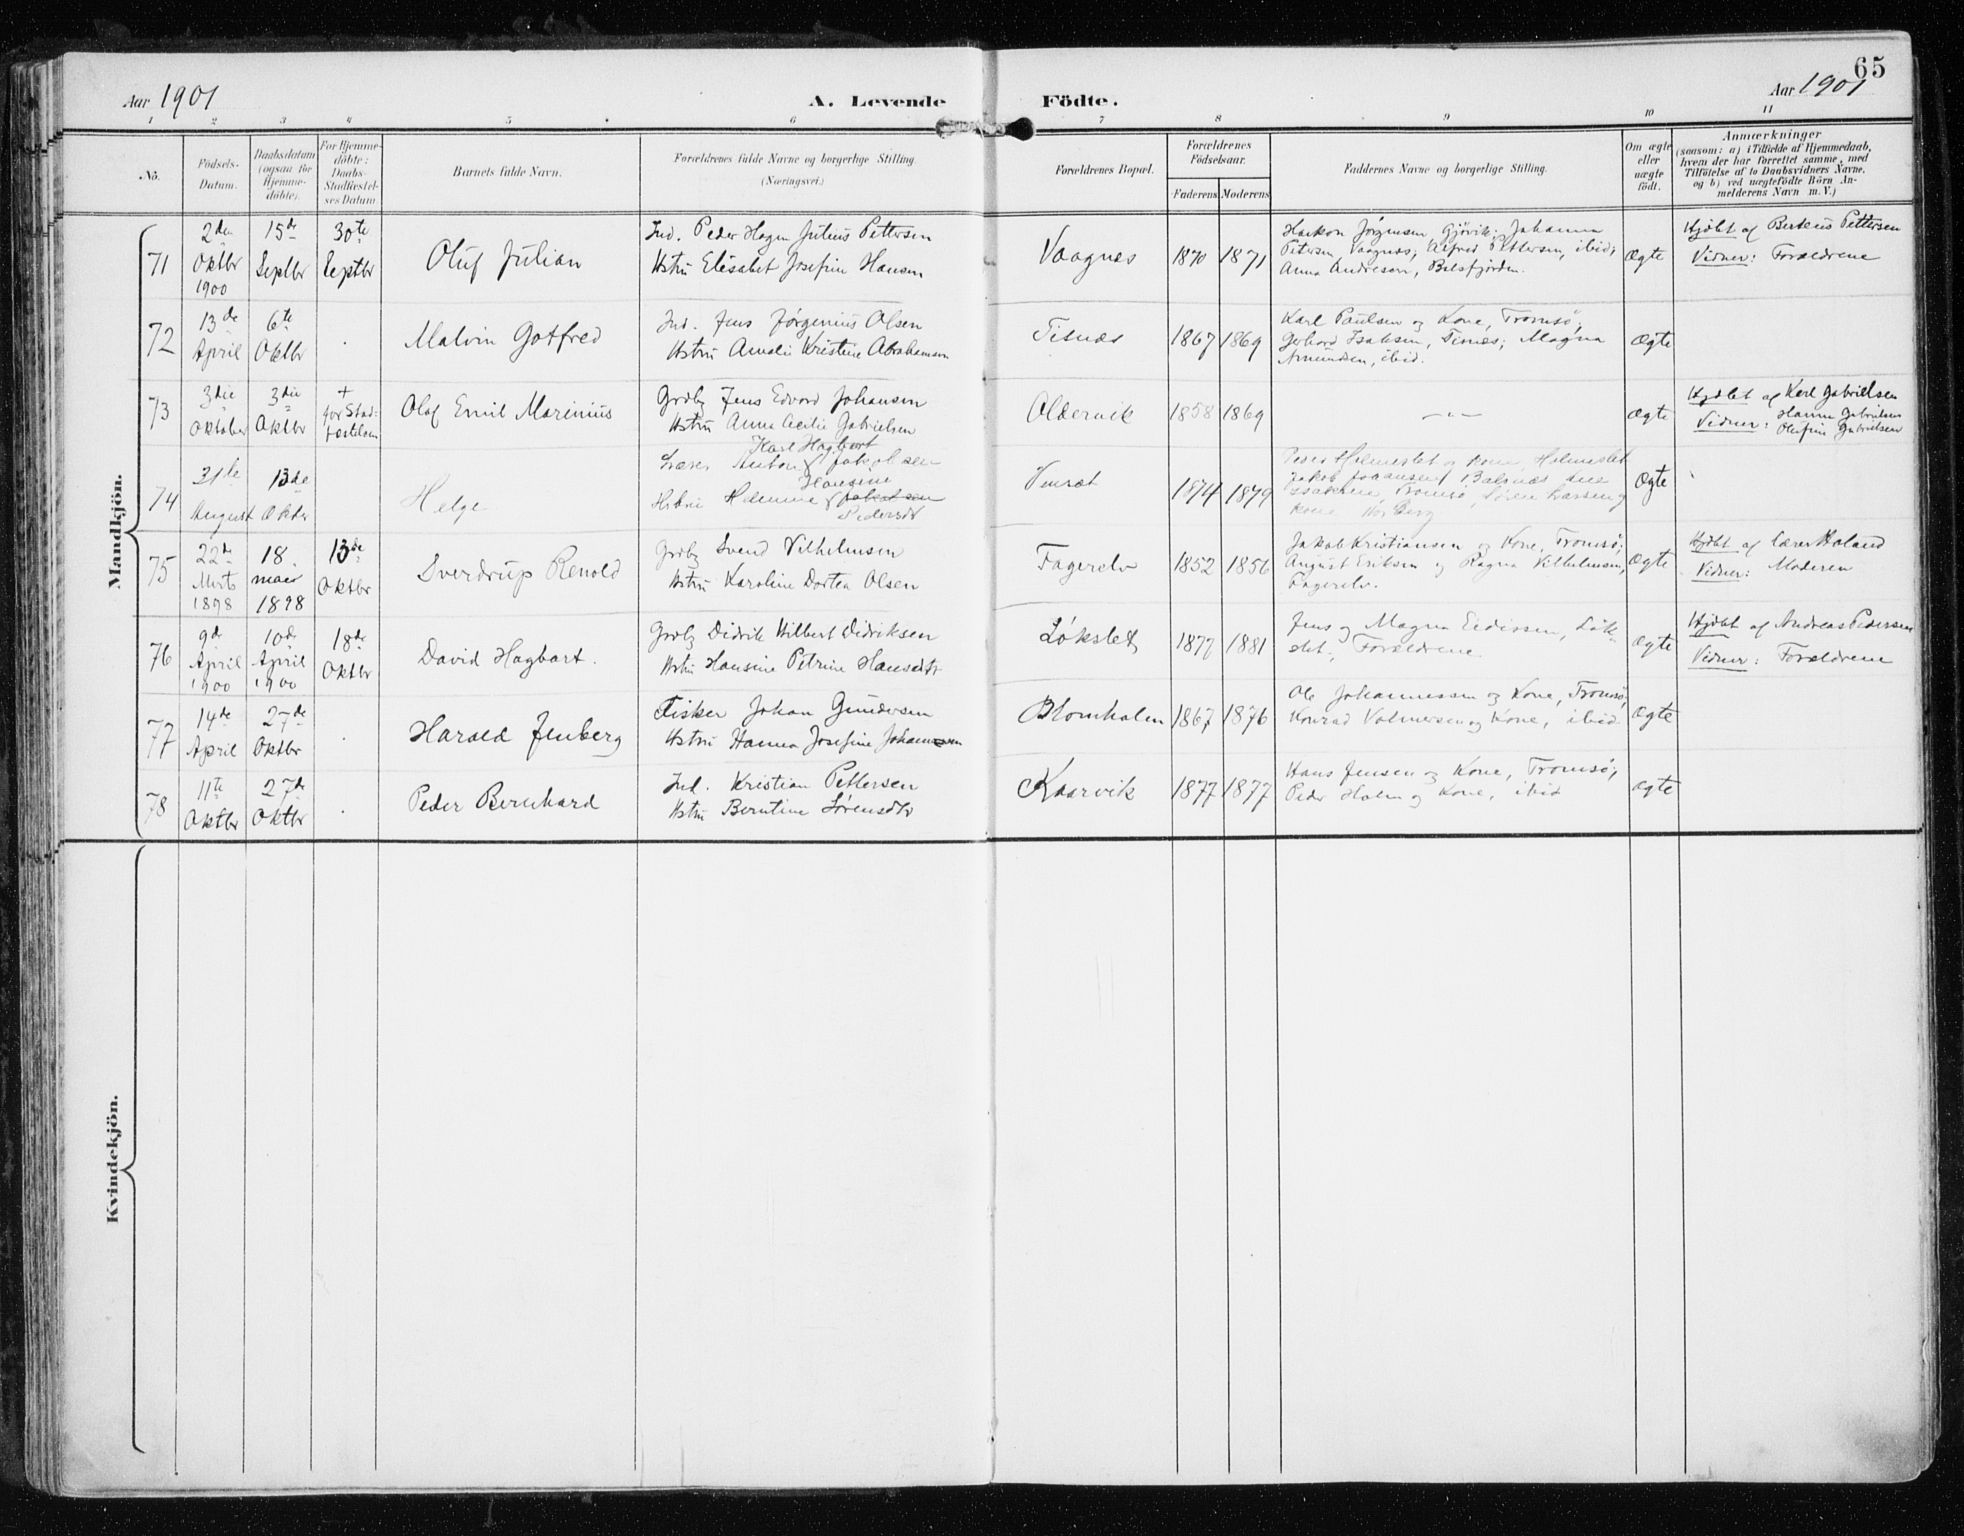 65
Aar 1901 A. Levende Födte. Aar 1901
1 2 3 4 5 6 7 8 9 10 11
No.
Födsels-
Datum.
Daabsdatum
(ogsaa for
Hjemme-
döbte).
For Hjemme-
döbte:
Daabs-
Stadfæstel-
ses Datum
Barnets fulde Navn.
Forældrenes fulde Navne og borgerlige Stilling.
(Næringsvei.)
Forældrenes Bopæl.
Forældrenes
Födselsaar.
Faderens Moderens
Faddernes Navne og borgerlige Stilling.
Om ægte
eller
uægte
födt.
Anmærkninger
(saasom: a) i Tilfælde af Hjemmedaab,
hvem der har forrettet samme, med
Tilföielse af to Daabsvidners Navne,
og b) ved uægtefödte Börn An-
melderens Navn m. V.)
Mandkjön.
71
2den
Oktbr
1900
15de
Septbr
30te
Septbr
Oluf Julian
Ind. Peder Hagen Julius Pettersen
Hstru Elisabet Josefine Hansen
Vaagnes
1870 1871
Haakon Jørgensen, Gjövik; Johanna
Petersen, Vaagnæs; Alfred Pettersen, ibid;
Anna Andresen, Balsfjorden.
Ægte
Hjdbt af Berteus Pettersen
Vidner: Forældrene
72
13de
April
6te
Oktbr
Malvin Gotfred
Ind. Jens Jørgenius Olsen
Hstru Amalie Kristine Abrahamsen
Tisnæs
1867 1869
Karl Paulsen og Kone, Tromsö;
Gerhard Isaksen, Tisnæs; Magna
Amundsen, ibid.
Ægte
73
3die
Oktober
3die
Oktbr
+
før Stad-
fæstelsen
Olaf Emil Marinius
Grdbr Jens Edvard Johansen
Hstru Anna Cecilie Gabrielsen
Oldervik
1858 1869
— " —
Ægte
Hjdbt af Karl Gabrielsen
Vidner: Hanna Gabrielsen
Olufine Gabrielsen
74
31te
August
13de
Oktbr
Helge
Karl Hagbart
Lærer Anton Jakobsen
Hansine
Hstru Helmine Jakobsen
Pedersdt
1874 1879
Peder Holmeslet og Kone, Holmeslet
Jakob Johansen, Balsnæs
Isaksen, Tromsö, Sören Larsen og
Kone
Ægte
75
22de
Mrts
1898
18
marts
1898
13de
Oktbr
Sverdrup Renold
Grdbr Svend Vilhelmsen
Hstru Karoline Dortea Olsen
Fagerelv
1852 1856
Jakob Kristiansen og Kone, Tromsö;
August Eriksen og Ragna Vilhelmsen,
Fagerelv.
Ægte
Hjdbt af Lærer Høland
Vidner: Moderen
76
9de
April
1900
10de
April
1900
18de
Oktbr
David Hagbart.
Grdbr Didrik Hilbert Didriksen
Hstru Hansine Petrine Hansdtr
Løkslet
1877 1881
Jens og Magna Eidissen, Løk-
slet; Forældrene
Ægte
Hjdbt af Andreas Pedersen
Vidner: Forældrene
77
14de
April
27de
Oktbr
Harald Jenberg
Fisker Johan Gundersen
Hstru Hanna Josefine Johannesen
Blomholm
1867 1876
Ole Johannessen og Kone, Tromsö;
Konrad Volmersen og Kone, ibid
Ægte
78
11te
Oktbr
27de
Oktbr
Peder Bernhard
Ind. Kristian Pettersen
Hstru Berntine Sörensdtr
Kaarvik
1877 1877
Hans Jensen og Kone, Tromsö;
Peder Holm og Kone, ibid
Ægte
Kvindekjön.